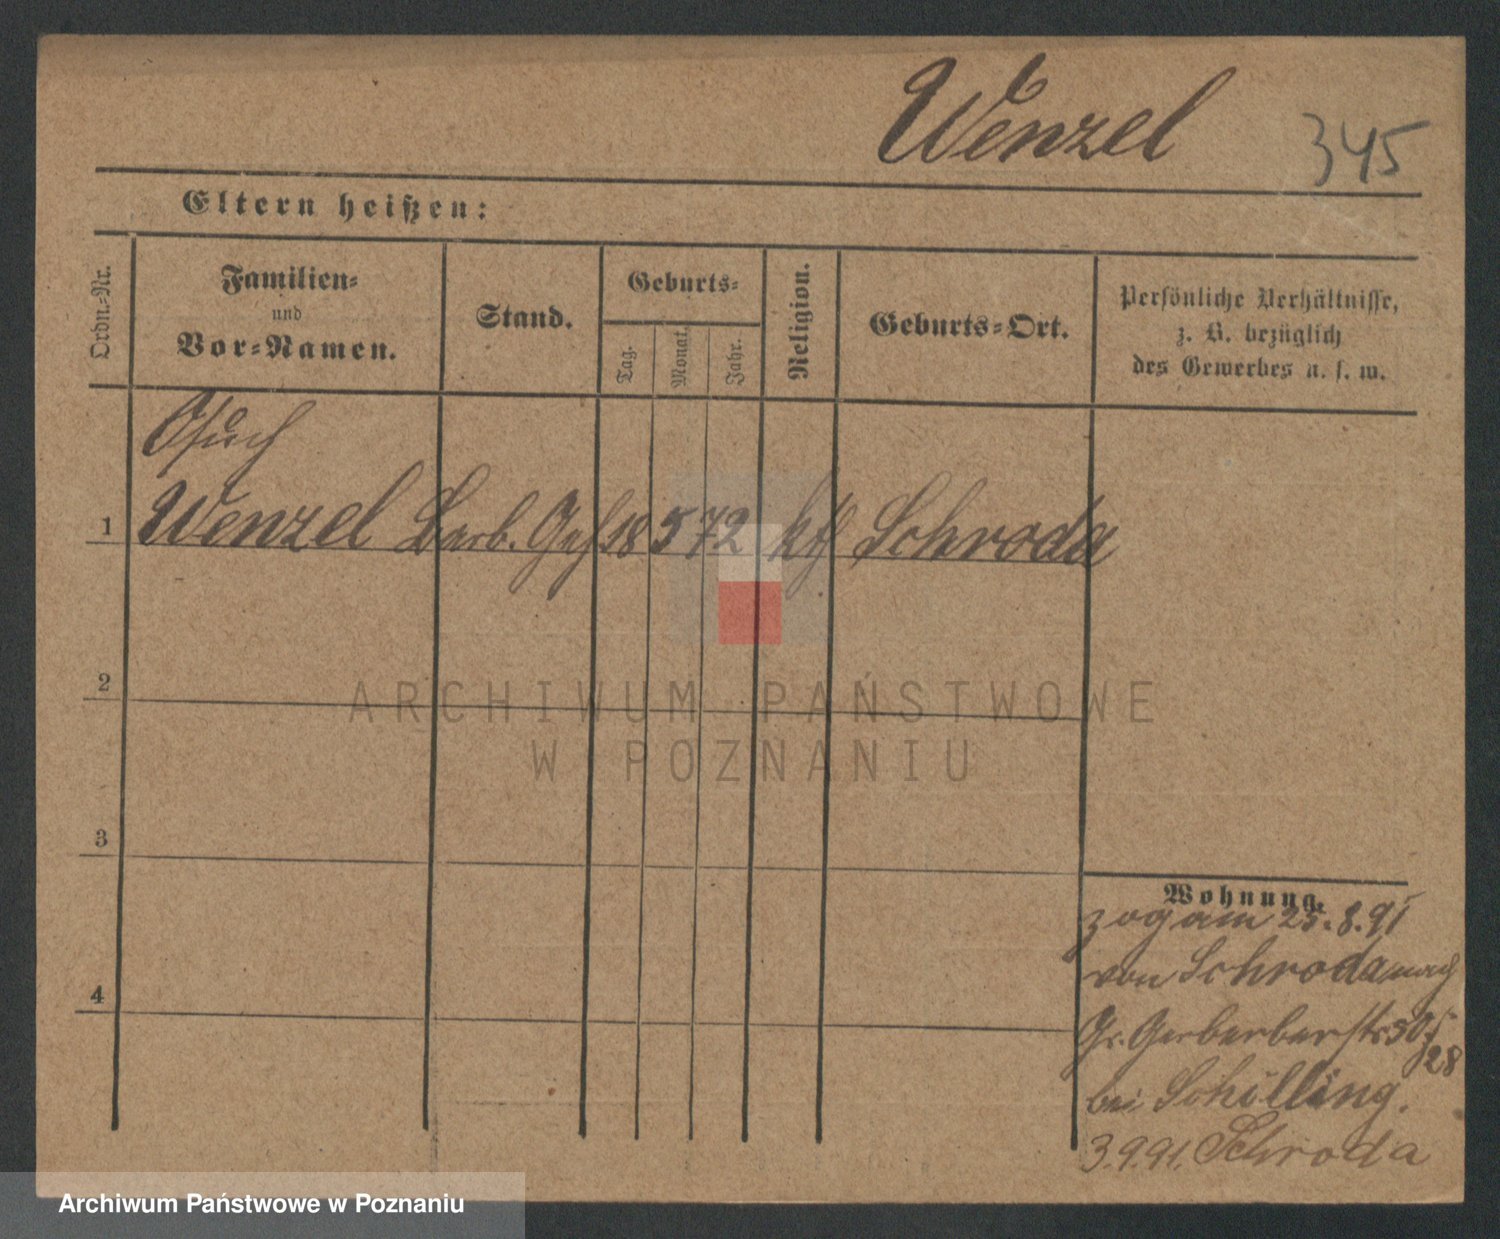 Wenzel 345
Eltern heißen:
Ordn.-Nr.
Familien-
und
Vor-Namen.
Stand.
Geburts-
Tag.
Monat.
Jahr.
Religion.
Geburts-Ort.
Persönliche Verhältnisse,
z. B. bezüglich
des Gewerbes u. s. w.
1 Wenzel Barb. 18 5 72 kth Schroda
2
3
4
Wohnung.
zog am 25.8.91
von Schroda nach
Gr. Gerberstr 30
28
bei Schilling.
3.9.91. Schroda
ARCHIWUM PAŃSTWOWE
W POZNANIU
Archiwum Państwowe w Poznaniu